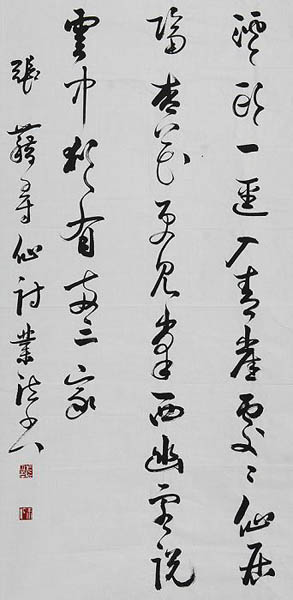 溪頭一逕入青崖處〻仙居
隔杏花更見峯西幽客説
雲中猶有兩三家
張籍尋仙詩業